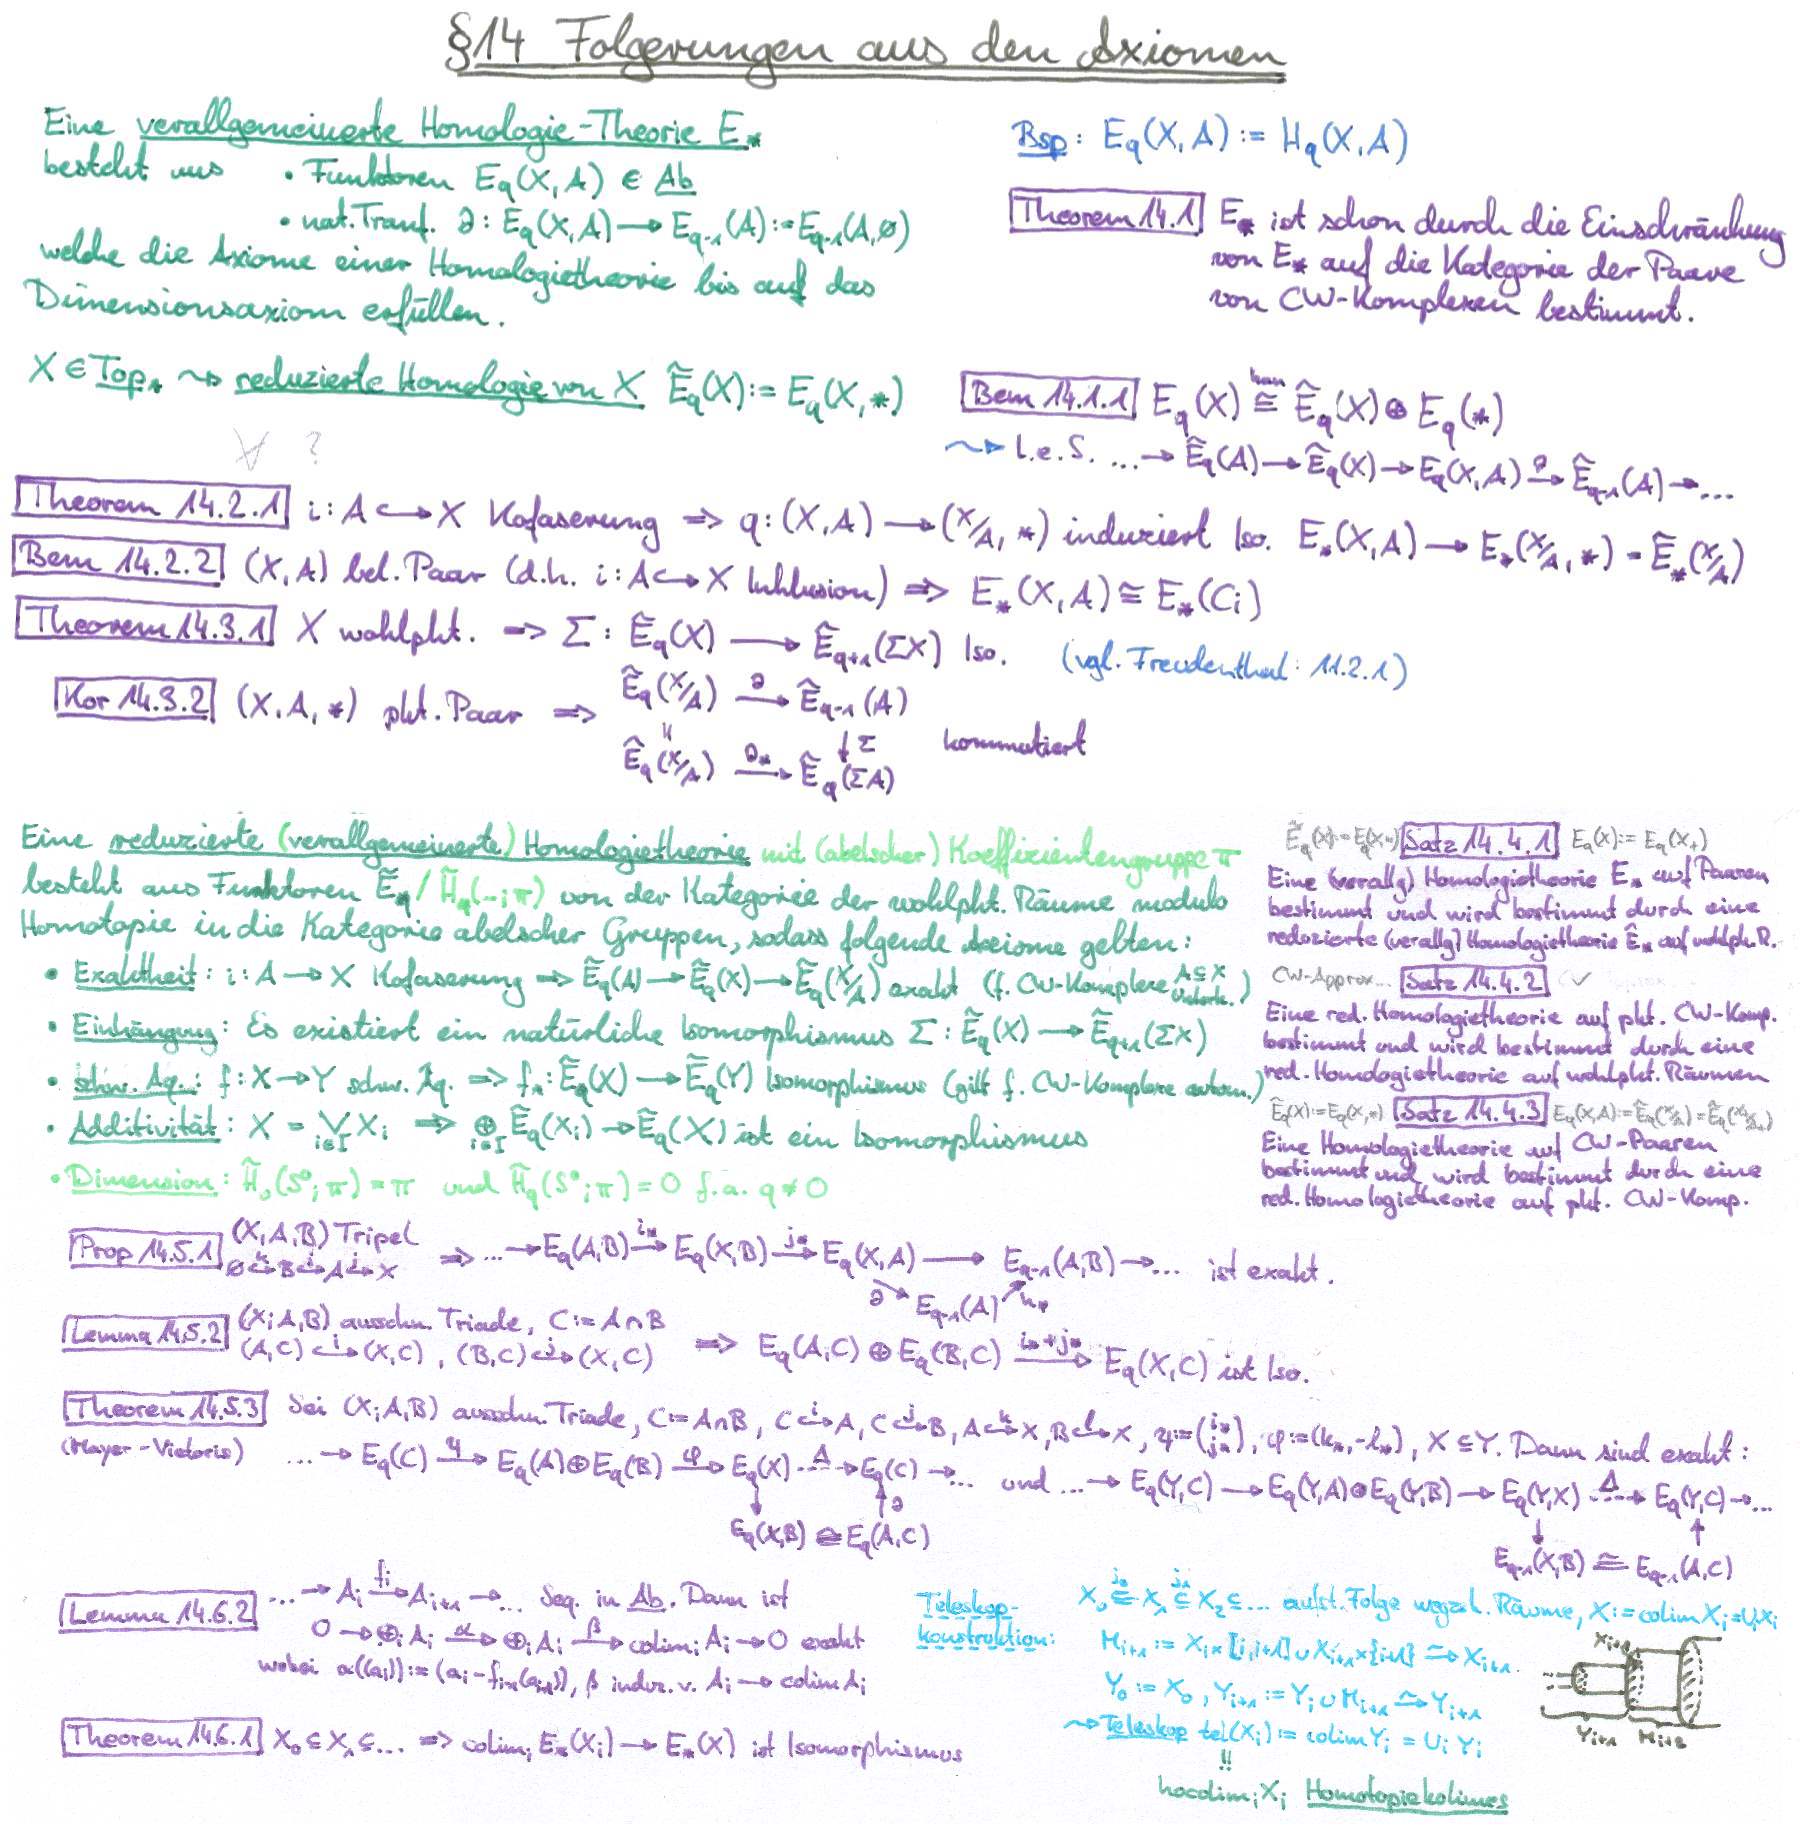 §14 Folgerungen aus den Axiomen
Eine verallgemeinerte Homologie-Theorie E_*
besteht aus • Funktoren E_q(X,A) ∈ Ab
• nat. Tranf. ∂: E_q(X,A) → E_{q-1}(A) := E_{q-1}(A,∅)
welche die Axiome einer Homologietheorie bis auf das
Dimensionsaxiom erfüllen.
Bsp: E_q(X,A) := H_q(X,A)
Theorem 14.1 E_* ist schon durch die Einschränkung
von E_* auf die Kategorie der Paare
von CW-Komplexen bestimmt.
X ∈ Top_* ⇝ reduzierte Homologie von X Ẽ_q(X) := E_q(X,*)
∀ ?
Bem 14.1.1 E_q(X) ≅ Ẽ_q(X) ⊕ E_q(*)
⇝ l.e.S. ... → Ẽ_q(A) → Ẽ_q(X) → E_q(X,A) →^∂ Ẽ_{q-1}(A) → ...
Theorem 14.2.1 i: A ↪ X Kofaserung ⇒ q: (X,A) → (X/A,*) induziert Iso. E_*(X,A) → E_*(X/A,*) = Ẽ_*(X/A)
Bem 14.2.2 (X,A) bel. Paar (d.h. i: A ↪ X Inklusion) ⇒ E_*(X,A) ≅ E_*(C_i)
Theorem 14.3.1 X wohlpkt. ⇒ Σ: Ẽ_q(X) → Ẽ_{q+1}(ΣX) Iso. (vgl. Freudenthal: 11.2.1)
Kor 14.3.2 (X,A,*) pkt. Paar ⇒ Ẽ_q(X/A) →^∂ Ẽ_{q-1}(A)
↓Σ kommutiert
Ẽ_q(X/A) →^{∂_*} Ẽ_q(ΣA)
Eine reduzierte (verallgemeinerte) Homologietheorie mit (abelscher) Koeffizientengruppe π
besteht aus Funktoren Ẽ_q / H̃_q(-;π) von der Kategorie der wohlpkt. Räume modulo
Homotopie in die Kategorie abelscher Gruppen, sodass folgende Axiome gelten:
• Exaktheit: i: A → X Kofaserung ⇒ Ẽ_q(A) → Ẽ_q(X) → Ẽ_q(X/A) exakt (f. CW-Komplexe A ⊆ X Unterk.)
• Einhängung: Es existiert ein natürliche Isomorphismus Σ: Ẽ_q(X) → Ẽ_{q+1}(ΣX)
• schw. Äq.: f: X → Y schw. Äq. ⇒ f_*: Ẽ_q(X) → Ẽ_q(Y) Isomorphismus (gilt f. CW-Komplexe autom.)
• Additivität: X = ⋁_{i∈I} X_i ⇒ ⊕_{i∈I} Ẽ_q(X_i) → Ẽ_q(X) ist ein Isomorphismus
• Dimension: H̃_0(S⁰;π) = π und H̃_q(S⁰;π) = 0 f.a. q ≠ 0
Ẽ_q(X) := E_q(X,*) Satz 14.4.1 E_q(X) := E_q(X_+)
Eine (verallg) Homologietheorie E_* auf Paaren
bestimmt und wird bestimmt durch eine
reduzierte (verallg) Homologietheorie Ẽ_* auf wohlpk.R.
CW-Approx... Satz 14.4.2 ✓
Eine red. Homologietheorie auf pkt. CW-Komp.
bestimmt und wird bestimmt durch eine
red. Homologietheorie auf wohlpkt. Räumen
Ẽ_q(X) := E_q(X,*) Satz 14.4.3 E_q(X,A) := Ẽ_q(X/A) = Ẽ_q(X_+/A_+)
Eine Homologietheorie auf CW-Paaren
bestimmt und wird bestimmt durch eine
red. Homologietheorie auf pkt. CW-Komp.
Prop 14.5.1 (X,A,B) Tripel
∅ ↪^k B ↪^i A ↪^j X ⇒ ... → E_q(A,B) →^{i_*} E_q(X,B) →^{j_*} E_q(X,A) → E_{q-1}(A,B) → ... ist exakt.
∂ ↘ E_{q-1}(A) ↗ k_*
Lemma 14.5.2 (X;A,B) ausschn. Triade, C := A∩B
(A,C) ↪^i (X,C), (B,C) ↪^j (X,C) ⇒ E_q(A,C) ⊕ E_q(B,C) →^{i_*+j_*} E_q(X,C) ist Iso.
Theorem 14.5.3 Sei (X;A,B) ausschn. Triade, C := A∩B, C ↪^i A, C ↪^j B, A ↪^k X, B ↪^l X, ψ := (i_* j_*), φ := (k_*, -l_*), X ⊆ Y. Dann sind exakt:
(Mayer-Vietoris) ... → E_q(C) →^ψ E_q(A) ⊕ E_q(B) →^φ E_q(X) →^Δ E_q(C) → ... und ... → E_q(Y,C) → E_q(Y,A) ⊕ E_q(Y,B) → E_q(Y,X) →^Δ E_q(Y,C) → ...
↓ ↑∂ ↓ ↑
E_q(X,B) ≅ E_q(A,C) E_{q-1}(X,B) ≅ E_{q-1}(A,C)
Lemma 14.6.2 ... → A_i →^{f_i} A_{i+1} → ... Seq. in Ab. Dann ist
0 → ⊕_i A_i →^α ⊕_i A_i →^β colim_i A_i → 0 exakt
wobei α((a_i)) := (a_i - f_{i-1}(a_{i-1})), β induz. v. A_i → colim A_i
Theorem 14.6.1 X_0 ⊆ X_1 ⊆ ... ⇒ colim_i E_*(X_i) → E_*(X) ist Isomorphismus
Teleskop-
konstruktion:
X_0 ⊆^{j_0} X_1 ⊆^{j_1} X_2 ⊆ ... aufst. Folge wegzsh. Räume, X := colim X_i = ∪_i X_i
M_{i+1} := X_i × [i,i+1] ∪ X_{i+1} × {i+1} ≃→ X_{i+1}.
Y_0 := X_0, Y_{i+1} := Y_i ∪ M_{i+1} ≃→ Y_{i+1}
⇝ Teleskop tel(X_i) := colim Y_i = ∪_i Y_i
!!
hocolim_i X_i Homotopiekolimes
X_{i+1}
Y_{i+1} M_{i+2}